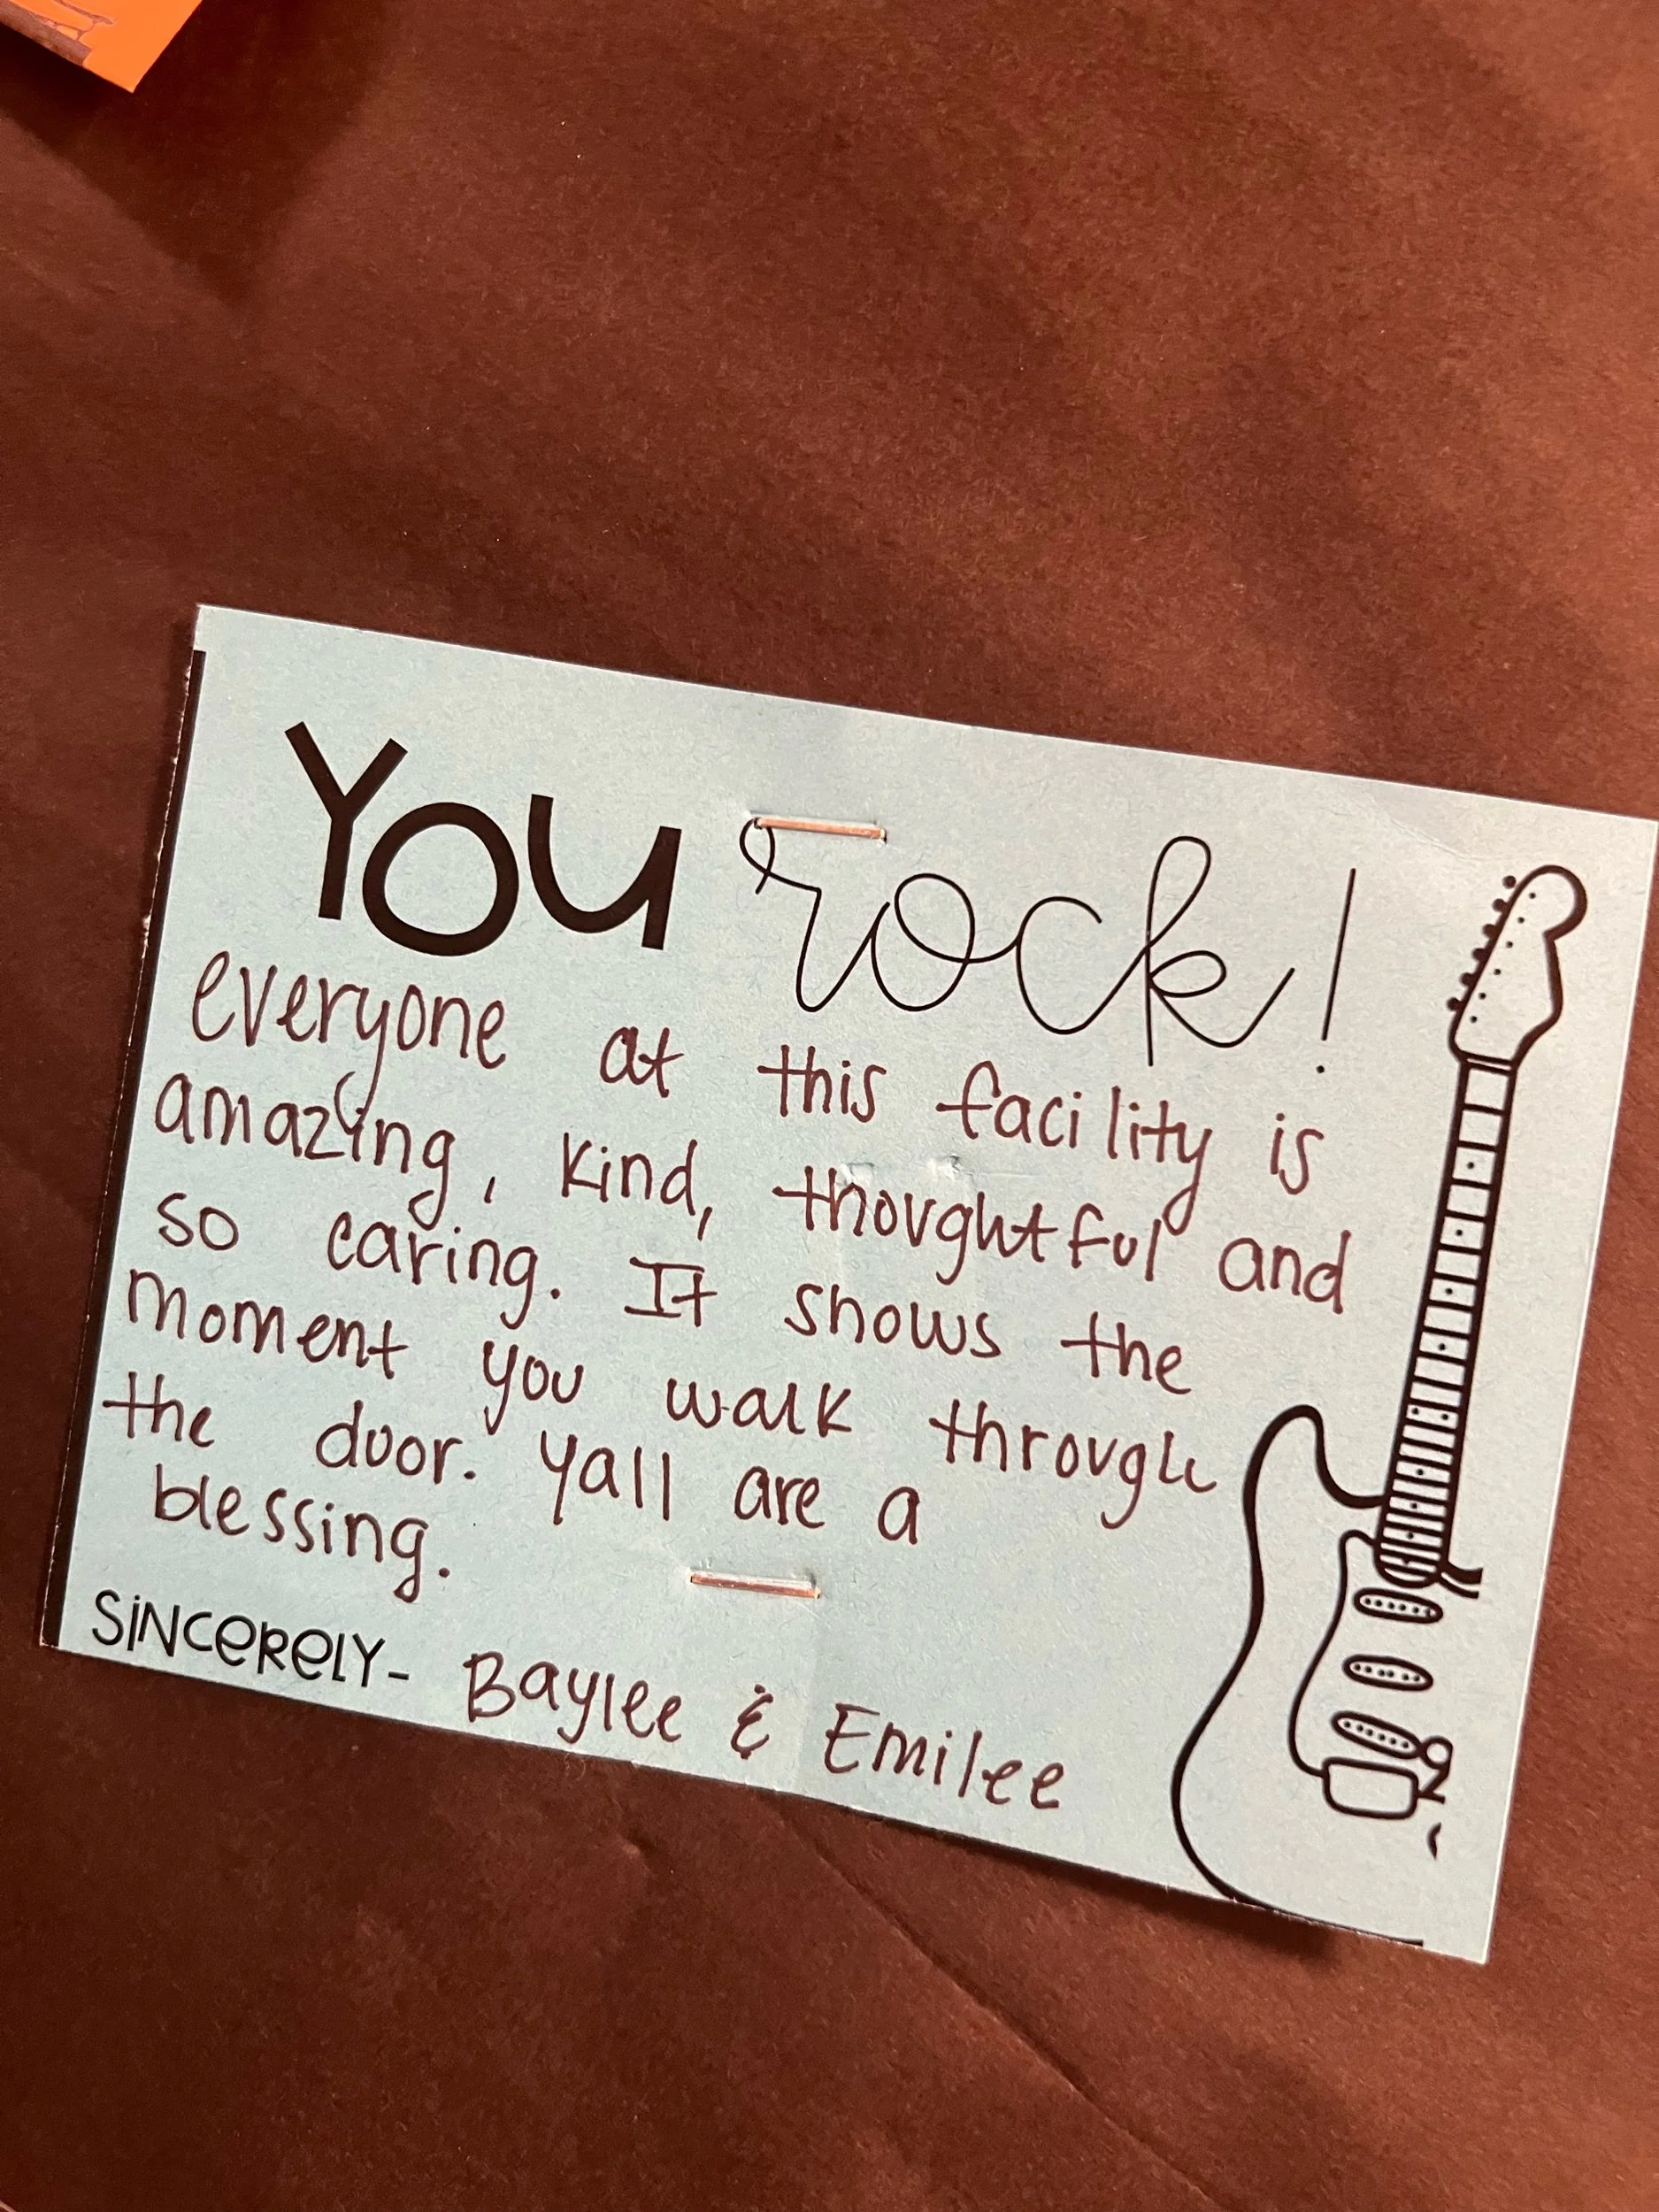 You rock!
everyone at this facility is
amazing, kind, thoughtful and
so caring. It shows the
moment you walk through
the door. Yall are a
blessing.
SINCERELY- Baylee & Emilee